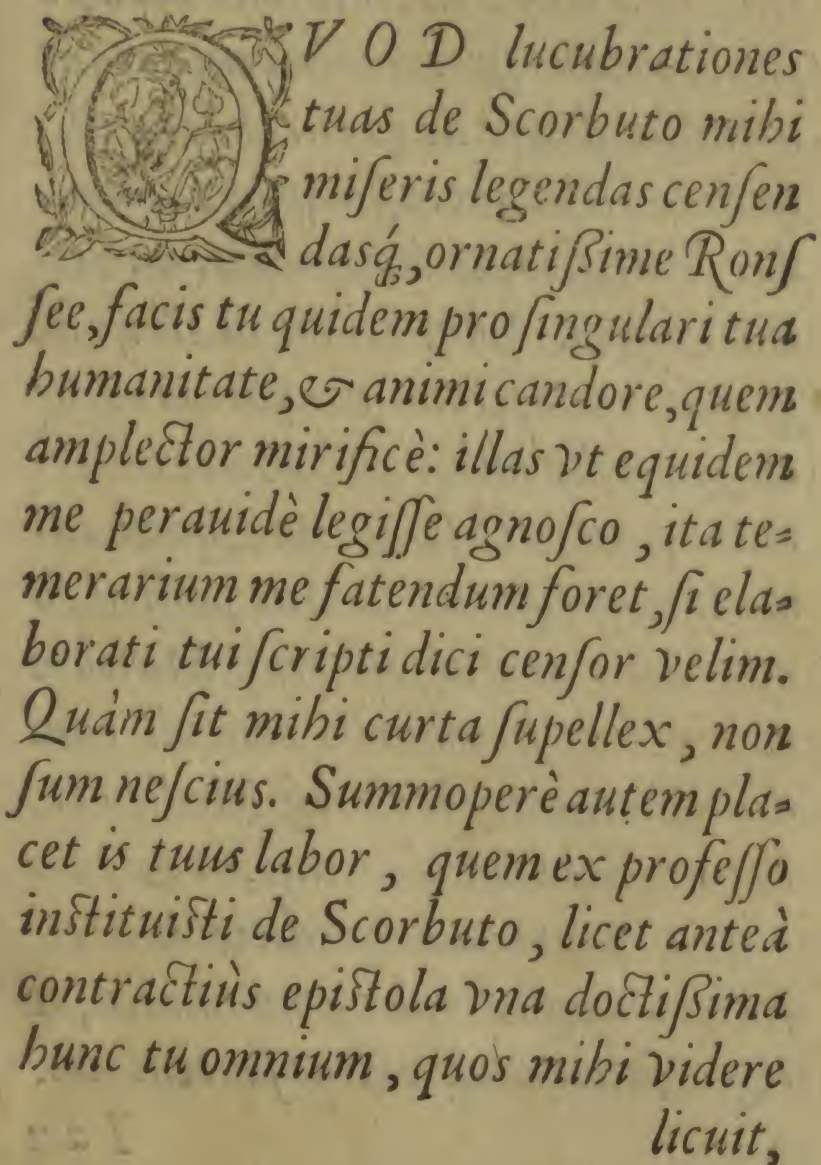 QVOD lucubrationes
tuas de Scorbuto mihi
miſeris legendas cenſen
dasq́;, ornatiſsime Ronſ
ſee, facis tu quidem pro ſingulari tua
humanitate, & animi candore, quem
amplector mirificè: illas vt equidem
me perauidè legiſſe agnoſco, ita te-
merarium me fatendum foret, ſi ela-
borati tui ſcripti dici cenſor velim.
Quàm ſit mihi curta ſupellex, non
ſum neſcius. Summoperè autem pla-
cet is tuus labor, quem ex profeſſo
inſtituiſti de Scorbuto, licet anteà
contractiùs epiſtola vna doctiſsima
hunc tu omnium, quos mihi videre
licuit,